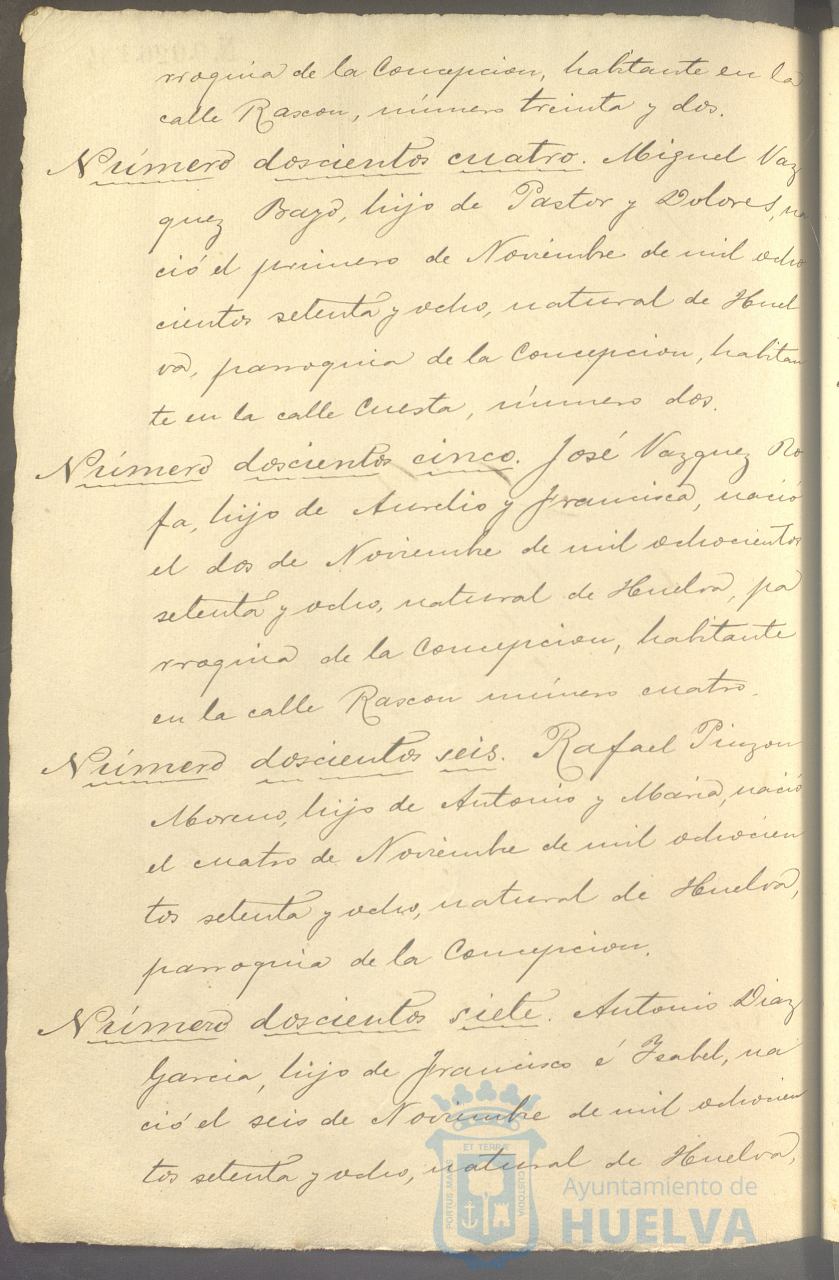 rroquia de la Concepcion, habitante en la
calle Rascon, número treinta y dos.
Número doscientos cuatro. Miguel Vaz
quez Bayo, hijo de Pastor y Dolores, na
ció el primero de Noviembre de mil ocho
cientos setenta y ocho, natural de Huel
va, parroquia de la Concepcion, habitan
te en la calle Cuesta, número dos.
Número doscientos cinco. José Vazquez Ro
fa, hijo de Aurelio y Francisca, nació
el dos de Noviembre de mil ochocientos
setenta y ocho, natural de Huelva, pa
rroquia de la Concepcion, habitante
en la calle Rascon número cuatro.
Número doscientos seis. Rafael Pinzon
Moreno, hijo de Antonio y Maria, nació
el cuatro de Noviembre de mil ochocien
tos setenta y ocho, natural de Huelva,
parroquia de la Concepcion.
Número doscientos siete. Antonio Diaz
Garcia, hijo de Francisco é Ysabel, na
ció el seis de Noviembre de mil ochocien
tos setenta y ocho, natural de Huelva,
ET TERRÆ
PORTUS MARIS
CUSTODIA
Ayuntamiento de
HUELVA